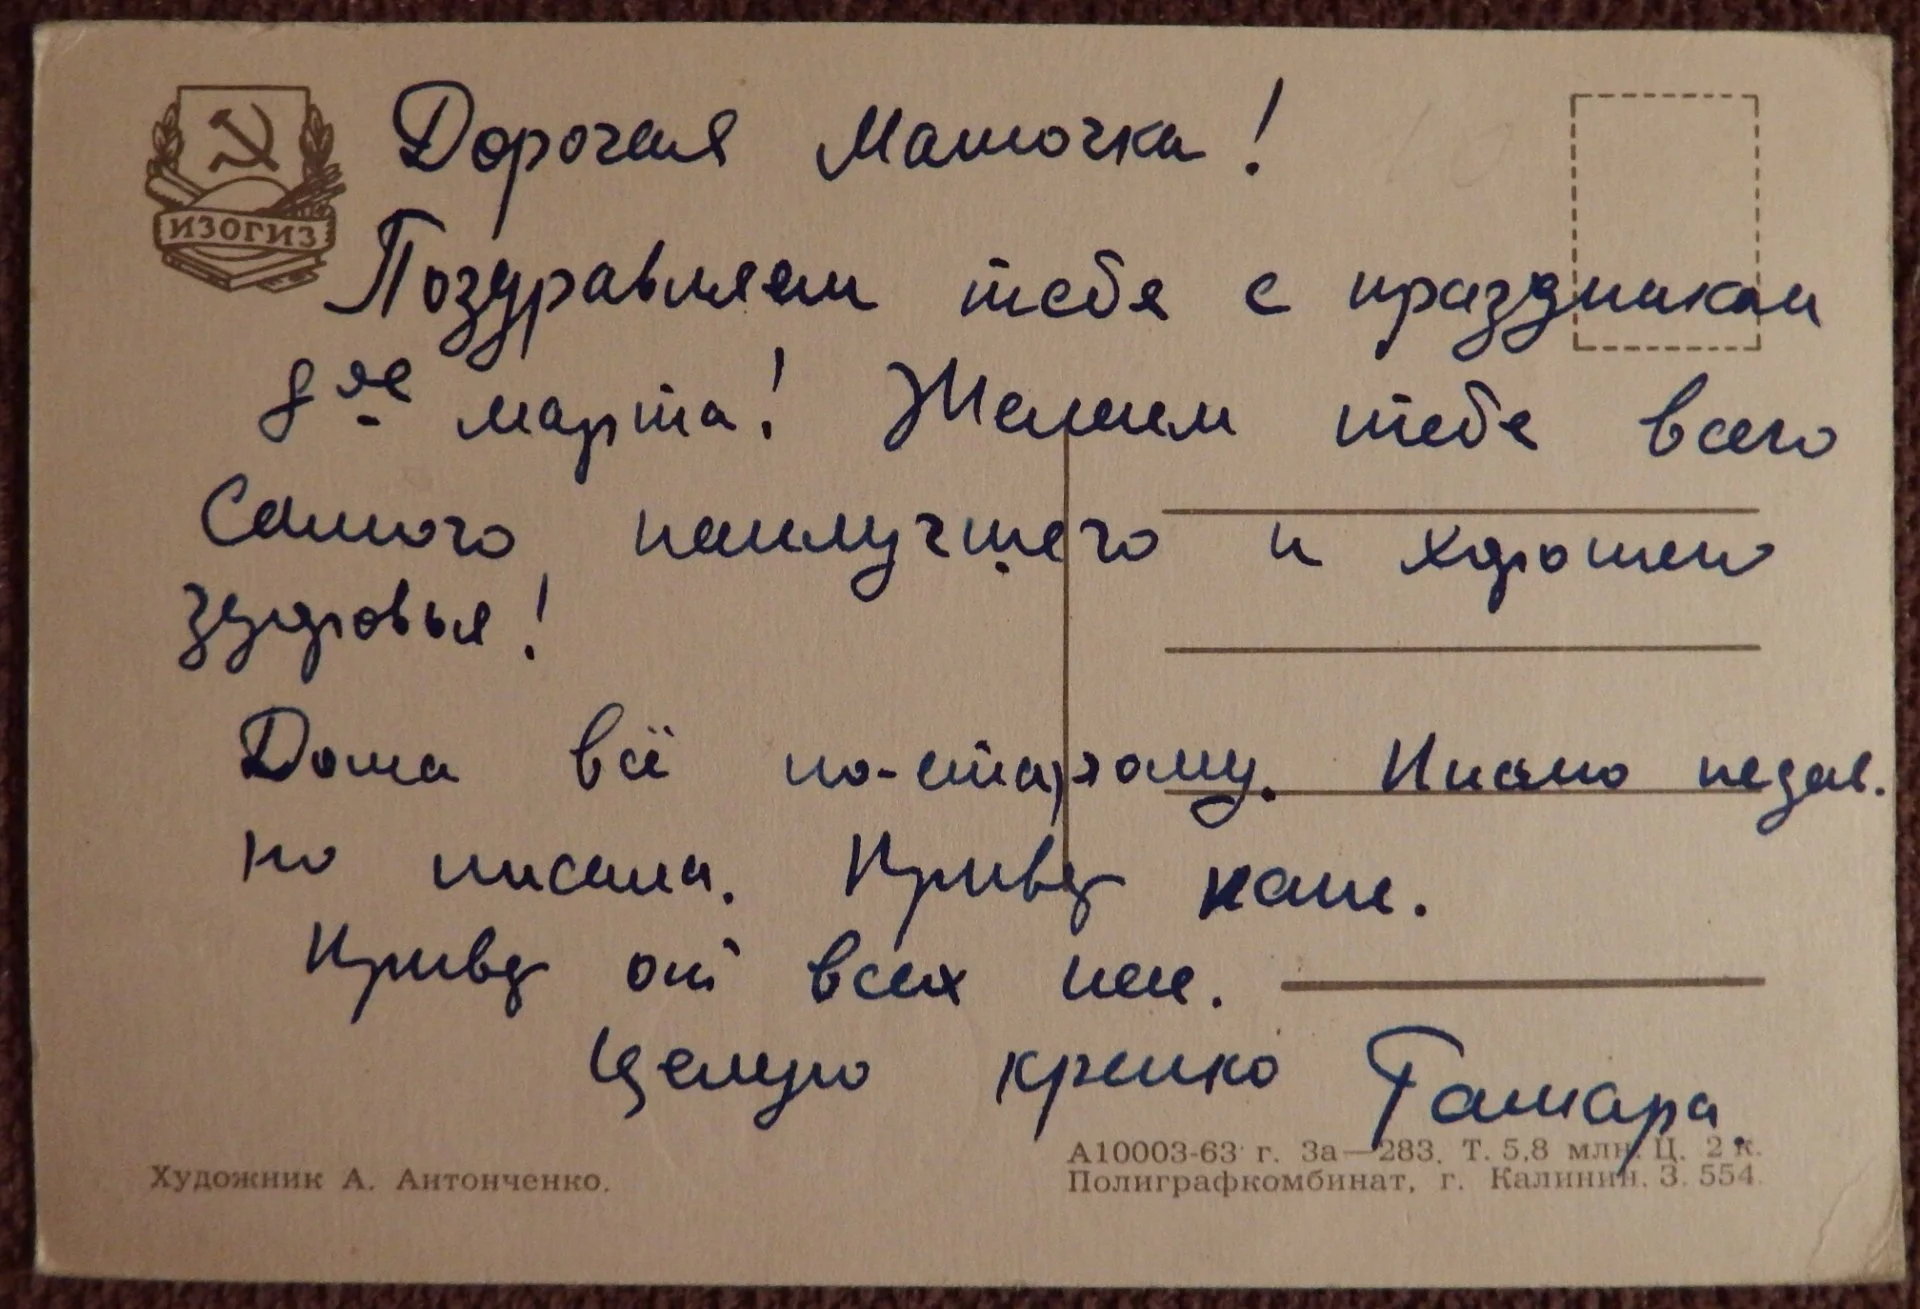 ИЗОГИЗ
Дорогая Мамочка!
Поздравляем тебя с праздником
8ое марта! Желаем тебе всего
самого наилучшего и хорошего
здоровья!
Дома всё по-старому. Письмо недав.
но писала. Привет
Привет от всех
Целую крепко Тамара.
Художник А. Антонченко.
А10003-63 г. За—283. Т. 5,8 млн. Ц. 2 к.
Полиграфкомбинат, г. Калинин. З. 554.